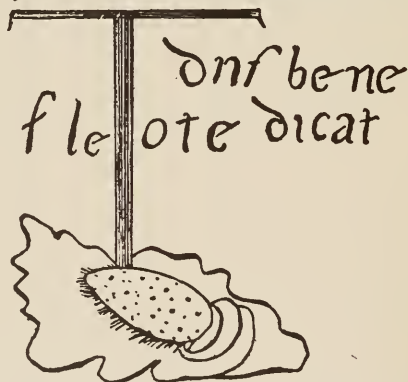 dnſ bene
f le ote dicat